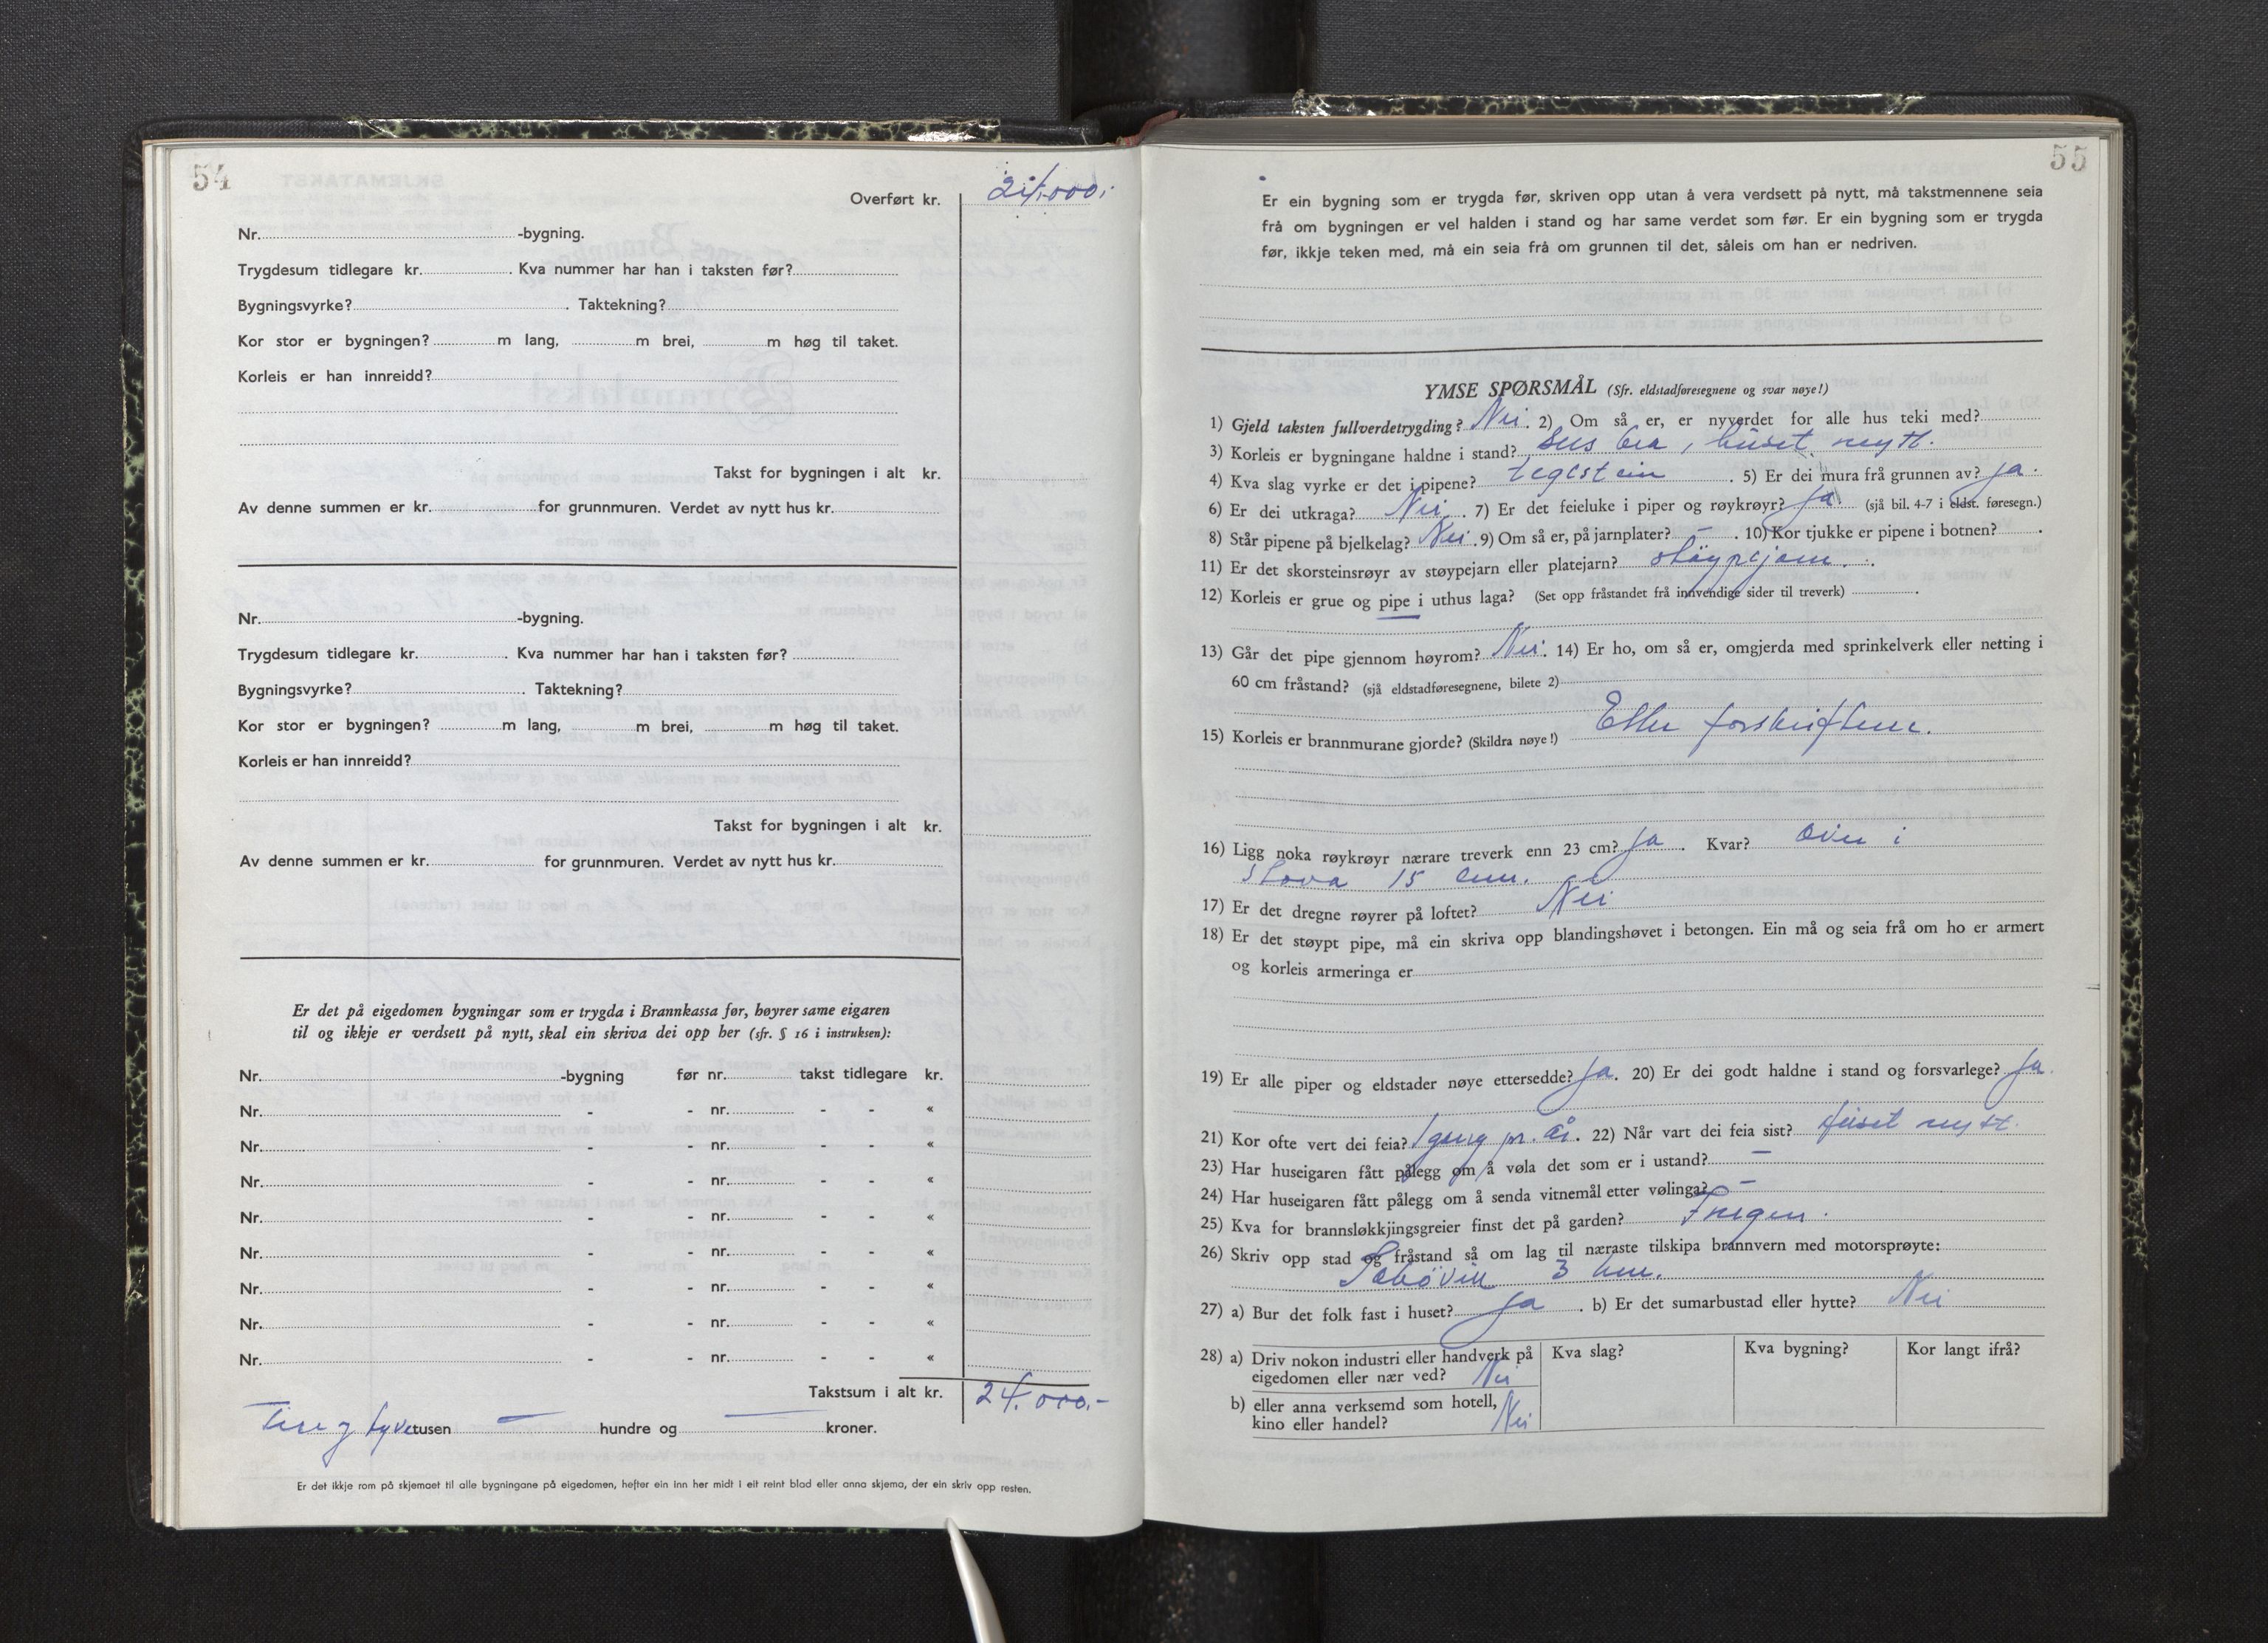 54
Overført kr. 24.000.-
Nr. -bygning.
Trygdesum tidlegare kr. . Kva nummer har han i taksten før?
Bygningsvyrke? . Taktekning?
Kor stor er bygningen? m lang, m brei, m høg til taket.
Korleis er han innreidd?
Takst for bygningen i alt kr.
Av denne summen er kr. for grunnmuren. Verdet av nytt hus kr.
Nr. -bygning.
Trygdesum tidlegare kr. . Kva nummer har han i taksten før?
Bygningsvyrke? . Taktekning?
Kor stor er bygningen? m lang, m brei, m høg til taket.
Korleis er han innreidd?
Takst for bygningen i alt kr.
Av denne summen er kr. for grunnmuren. Verdet av nytt hus kr.
Er det på eigedomen bygningar som er trygda i Brannkassa før, høyrer same eigaren
til og ikkje er verdsett på nytt, skal ein skriva dei opp her (sfr. § 16 i instruksen):
Nr. -bygning før nr. takst tidlegare kr.
Nr. - - nr. - - «
Nr. - - nr. - - «
Nr. - - nr. - - «
Nr. - - nr. - - «
Nr. - - nr. - - «
Nr. - - nr. - - «
Nr. - - nr. - - «
Nr. - - nr. - - «
Takstsum i alt kr. 24.000.-
Fire og tyve tusen — hundre og — kroner.
Er det ikkje rom på skjemaet til alle bygningane på eigedomen, hefter ein inn her midt i eit reint blad eller anna skjema, der ein skriv opp resten.
55
Er ein bygning som er trygda før, skriven opp utan å vera verdsett på nytt, må takstmennene seia
frå om bygningen er vel halden i stand og har same verdet som før. Er ein bygning som er trygda
før, ikkje teken med, må ein seia frå om grunnen til det, såleis om han er nedriven.
YMSE SPØRSMÅL (Sfr. eldstadføresegnene og svar nøye!)
1) Gjeld taksten fullverdetrygding? Nei. 2) Om så er, er nyverdet for alle hus teki med?
3) Korleis er bygningane haldne i stand? bra, huset nytt.
4) Kva slag vyrke er det i pipene? teglstein . 5) Er dei mura frå grunnen av? ja.
6) Er dei utkraga? Nei . 7) Er det feieluke i piper og røykrøyr? ja. (sjå bil. 4-7 i eldst. føresegn.)
8) Står pipene på bjelkelag? Nei . 9) Om så er, på jarnplater? — . 10) Kor tjukke er pipene i botnen? .
11) Er det skorsteinsrøyr av støypejarn eller platejarn? støypejarn.
12) Korleis er grue og pipe i uthus laga? (Set opp fråstandet frå innvendige sider til treverk) .
13) Går det pipe gjennom høyrom? Nei. 14) Er ho, om så er, omgjerda med sprinkelverk eller netting i
60 cm fråstand? (sjå eldstadføresegnene, bilete 2)
15) Korleis er brannmurane gjorde? (Skildra nøye!) Etter forskriftene.
16) Ligg noka røykrøyr nærare treverk enn 23 cm? ja . Kvar? Oven i
Stova 15 cm.
17) Er det dregne røyrer på loftet? Nei
18) Er det støypt pipe, må ein skriva opp blandingshøvet i betongen. Ein må og seia frå om ho er armert
og korleis armeringa er
19) Er alle piper og eldstader nøye ettersedde? ja. 20) Er dei godt haldne i stand og forsvarlege? ja.
21) Kor ofte vert dei feia? 1 gang pr. år. 22) Når vart dei feia sist? Huset nytt.
23) Har huseigaren fått pålegg om å vøla det som er i ustand? —
24) Har huseigaren fått pålegg om å senda vitnemål etter vølinga? —
25) Kva for brannsløkkjingsgreier finst det på garden? Ingen.
26) Skriv opp stad og fråstand så om lag til næraste tilskipa brannvern med motorsprøyte:
3 km.
27) a) Bur det folk fast i huset? ja . b) Er det sumarbustad eller hytte? Nei
28) a) Driv nokon industri eller handverk på
eigedomen eller nær ved? Nei
Kva slag? Kva bygning? Kor langt ifrå?
b) eller anna verksemd som hotell,
kino eller handel? Nei